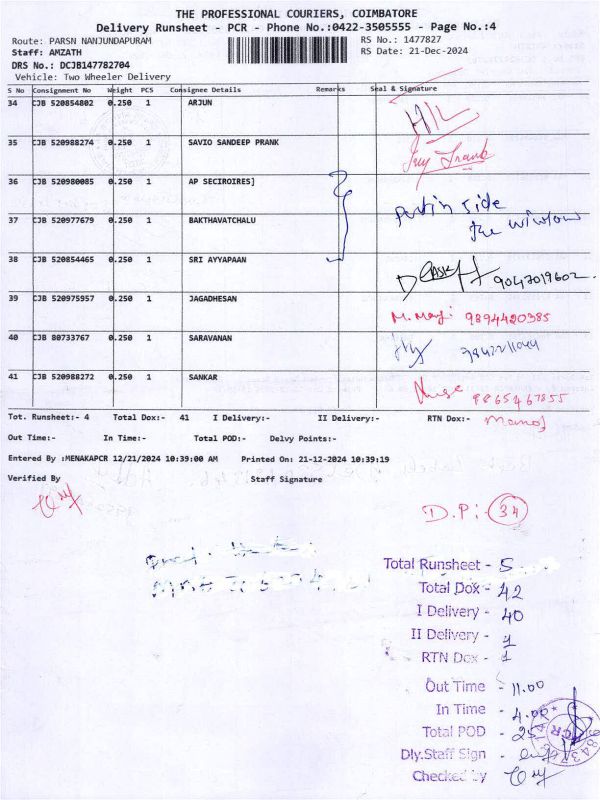 THE PROFESSIONAL COURIERS, COIMBATORE
Delivery Runsheet - PCR - Phone No.:0422-3505555 - Page No.:4
Route: PARSN NANJUNDAPURAM
RS No.: 1477827
Staff: AMZATH
RS Date: 21-Dec-2024
DRS No.: DCJB147782704
Vehicle: Two Wheeler Delivery
S No Consignment No Weight PCS Consignee Details Remarks Seal & Signature
34 CJB 520854802 0.250 1 ARJUN
35 CJB 520988274 0.250 1 SAVIO SANDEEP PRANK
36 CJB 520980085 0.250 1 AP SECIROIRES]
37 CJB 520977679 0.250 1 BAKTHAVATCHALU
38 CJB 520854465 0.250 1 SRI AYYAPAAN 9047019602
39 CJB 520975957 0.250 1 JAGADHESAN 9894420385
40 CJB 80733767 0.250 1 SARAVANAN
41 CJB 520988272 0.250 1 SANKAR
Tot. Runsheet:- 4 Total Dox:- 41 I Delivery:- II Delivery:- RTN Dox:- Manoj
Out Time:- In Time:- Total POD:- Delvy Points:-
Entered By :MENAKAPCR 12/21/2024 10:39:00 AM Printed On: 21-12-2024 10:39:19
Verified By Staff Signature
D.P:- 34
Total Runsheet - 5
Total Dox - 42
I Delivery - 40
II Delivery - 1
RTN Dox - 1
Out Time - 11.00
In Time - 4.00
Total POD - 25
Dly.Staff Sign -
Checked by